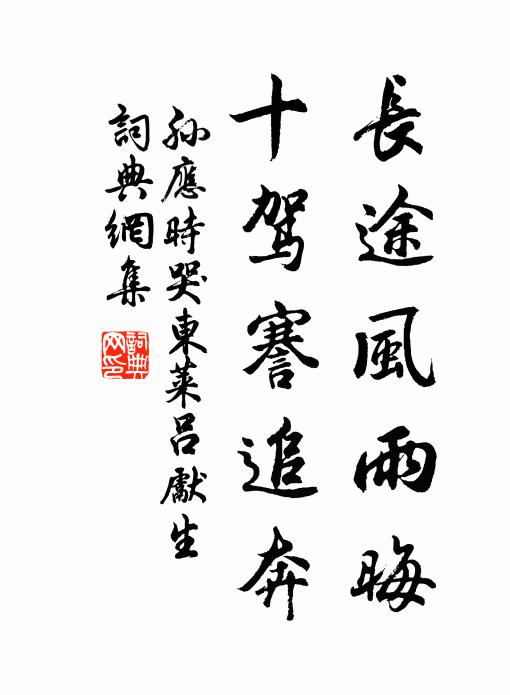 長途風雨晦
十駕謇追奔
孫應時哭東萊呂獻生
詞典網集
詞典网印